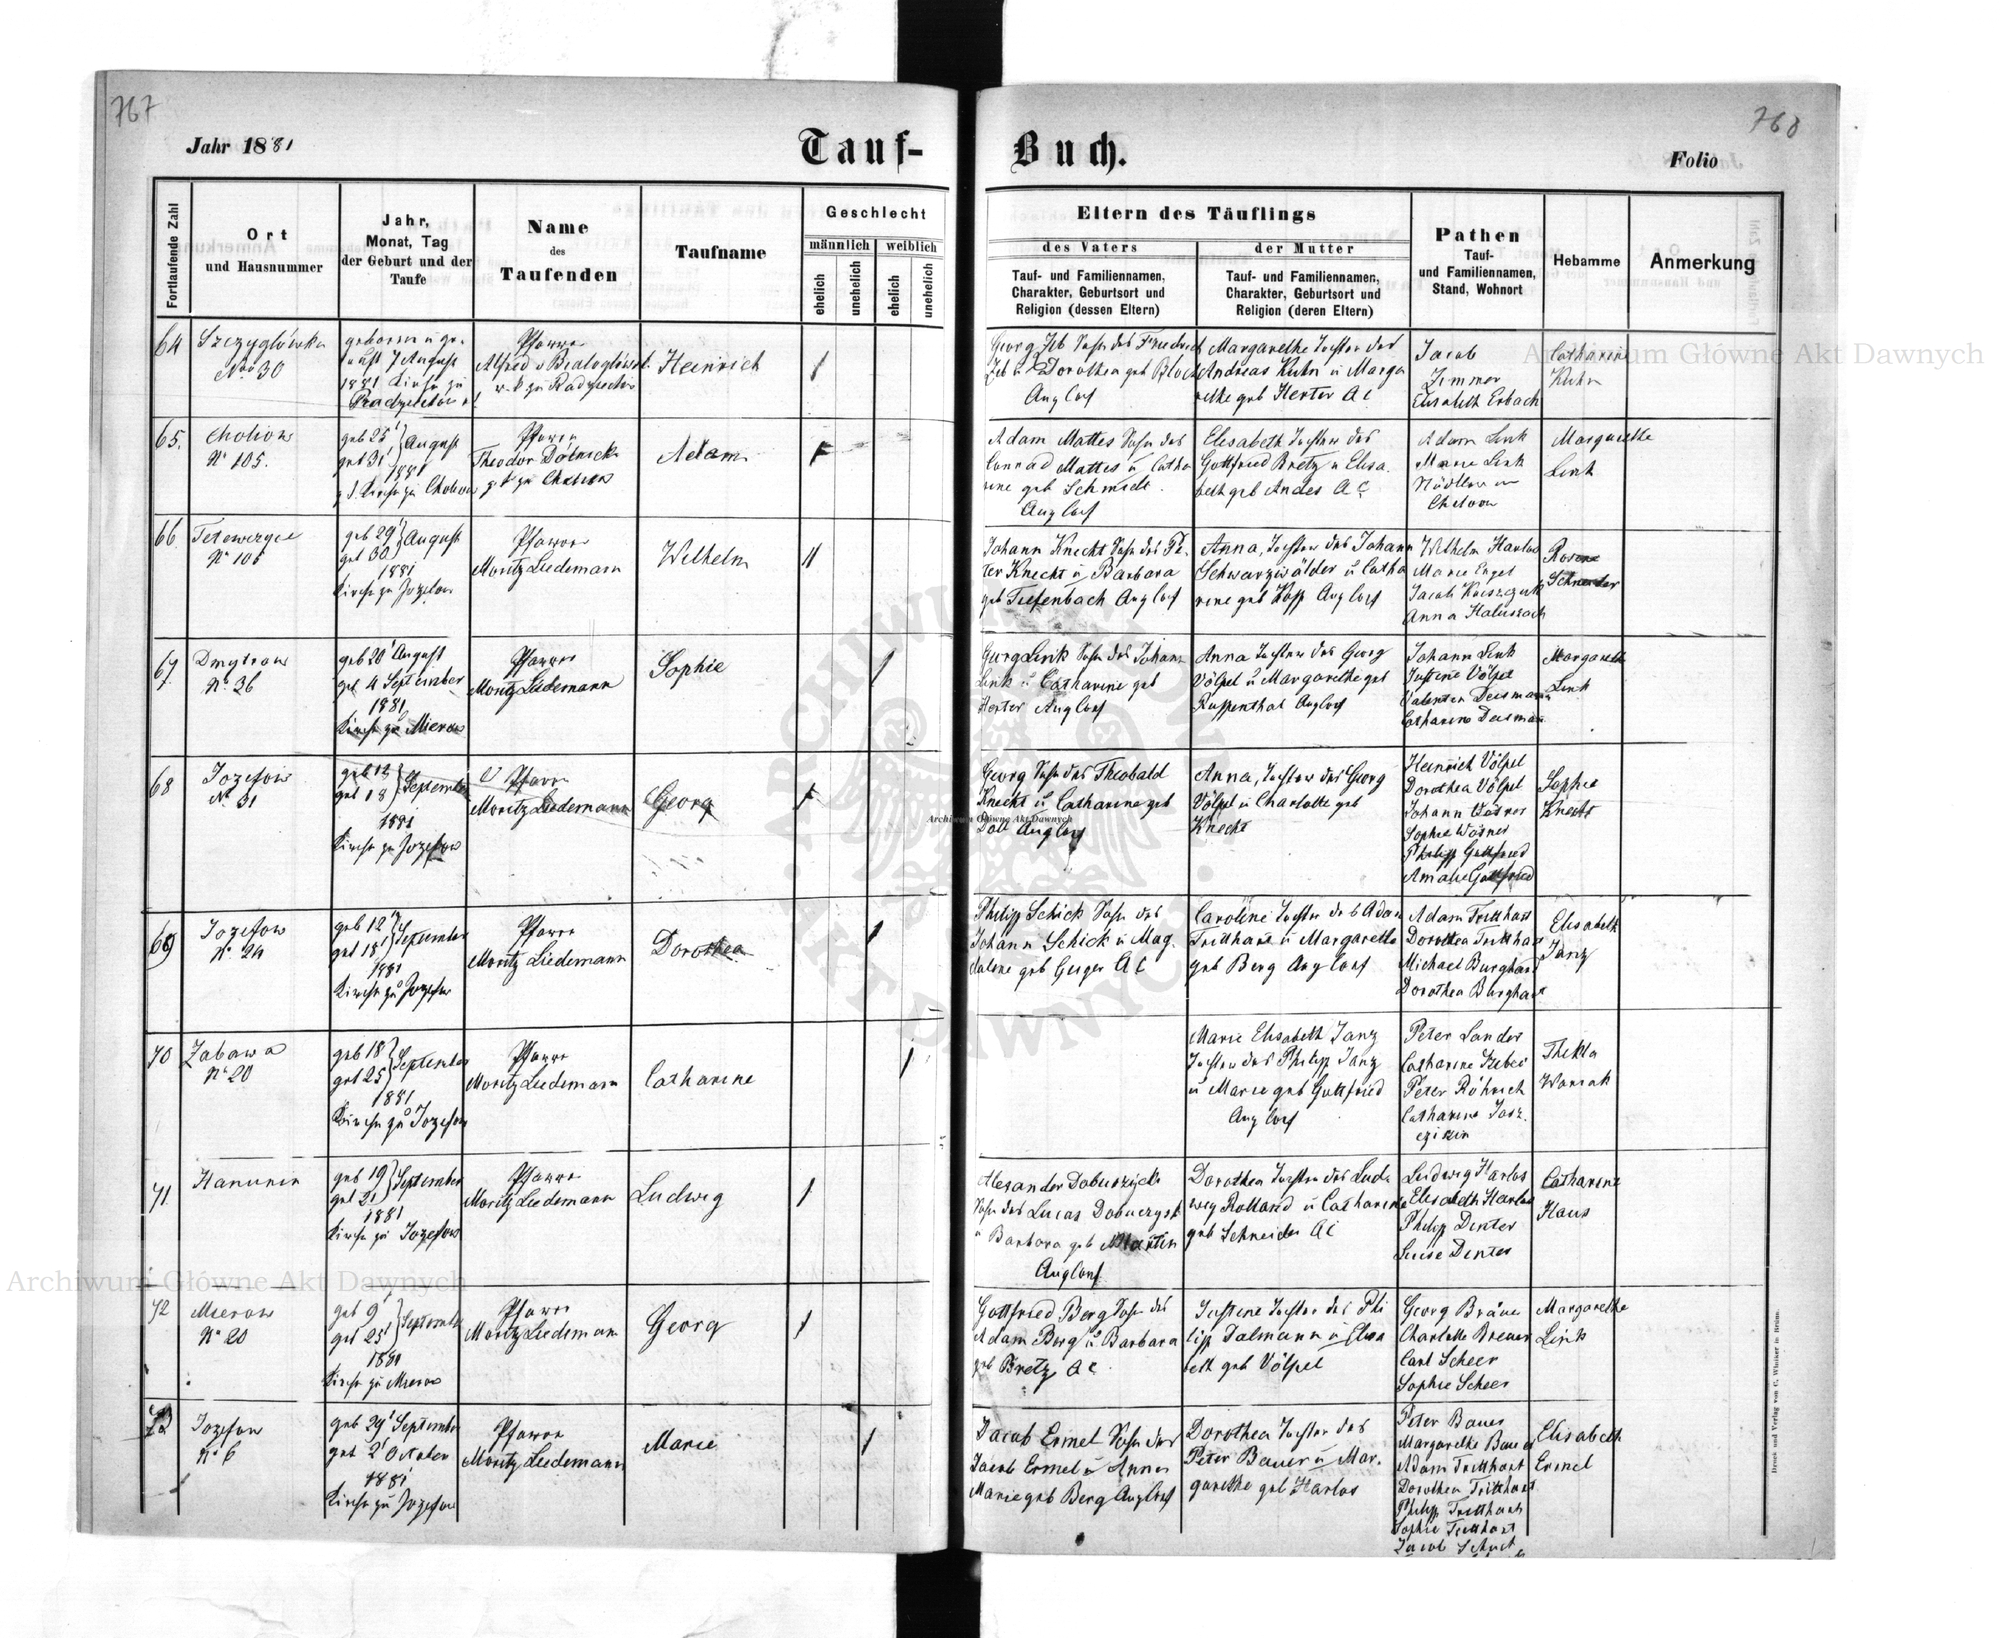 767
768
Jahr 1881
Tauf-Buch.
Folio
Fortlaufende Zahl
Ort
und Hausnummer
Jahr,
Monat, Tag
der Geburt und der
Taufe
Name
des
Taufenden
Taufname
Geschlecht
männlich
weiblich
ehelich
unehelich
ehelich
unehelich
Eltern des Täuflings
des Vaters
Tauf- und Familiennamen,
Charakter, Geburtsort und
Religion (dessen Eltern)
der Mutter
Tauf- und Familiennamen,
Charakter, Geburtsort und
Religion (deren Eltern)
Pathen
Tauf-
und Familiennamen,
Stand, Wohnort
Hebamme
Anmerkung
64
Szczyglówka
No 30
geboren u ge-
tauft 7 August
1881 Kirche zu
Pfarrer
Heinrich
Georg Zeb Sohn des Friedrich
Zeb u Dorothea geb Bloch
Augs Conf
Margarethe Tochter des
Andreas Kuhn u Marga
rethe geb Herter AC
Jacob
Zimmer
Elisabeth Erbach
Catharine
Kuhn
65.
Cholow
No 105.
geb 25 } August
get 31
1881
Kirche zu Cholow
Pfarrer
Theodor
zu Cholow
Adam
Adam Mattes Sohn des
Conrad Mattes u Catha
rine geb Schmidt.
Augs Conf
Elisabeth Tochter des
Gottfried Bretz u Elisa.
beth geb Andes AC
Adam Link
Marie Link
Margarethe
Link
66
Tetewczyce
No 106
geb 29 } August
get 30
1881
Kirche zu Jozefow
Pfarrer
Moritz Liedemann
Wilhelm
Johann Knecht Sohn des Pe-
ter Knecht u Barbara
geb Tiefenbach Augs Conf
Anna, Tochter des Johann
Schwarzwälder u Catha
rine geb Augs Conf
Wilhelm Harlos
Marie Engel
Jacob
Anna
Rosine
Schneider
67
Dmytrow
No 36
geb 20 August
get 4 September
1881
Kirche zu Mierow
Pfarrer
Moritz Liedemann
Sophie
Georg Link Sohn des Johann
Link u Catharine geb
Herter Augs Conf
Anna Tochter des Georg
Völpel u Margarethe geb
Ruppenthal Augs Conf
Johann Link
Justine Völpel
Valentin Deismann
Catharine Deismann
Margareth
Link
68
Jozefow
No 31
geb 12 } September
get 18
1881
Kirche zu Jozefow
Pfarrer
Moritz Liedemann
Georg
Georg Sohn des Theobald
Knecht u Catharine geb
Doll Augs Conf
Anna, Tochter des Georg
Völpel u Charlotte geb
Knecht
Heinrich Völpel
Dorothea Völpel
Johann Wösner
Sophie Wösner
Philipp Gottfried
Amalie Gottfried
Sophie
Knecht
69
Jozefow
No 24
geb 12 } September
get 18
1881
Kirche zu Jozefow
Pfarrer
Moritz Liedemann
Dorothea
Philipp Schick Sohn des
Johann Schick u Mag.
dalene geb Geiger AC
Caroline Tochter des Adam
Tritthart u Margarethe
geb Berg Augs Conf
Adam Tritthart
Dorothea Tritthart
Michael Burghart
Dorothea Burghart
Elisabeth
Janz
70
Zabawa
No 20
geb 18 } September
get 25
1881
Kirche zu Jozefow
Pfarrer
Moritz Liedemann
Catharine
Marie Elisabeth Janz
Tochter des Philipp Janz
u Marie geb Gottfried
Augs Conf
Peter Lander
Catharine
Peter Röhrich
Catharine
Thekla
71
Hanunin
geb 19 } September
get 21
1881
Kirche zu Jozefow
Pfarrer
Moritz Liedemann
Ludwig
Alexander
Sohn des Lucas
u Barbara geb Martin
Augs Conf
Dorothea Tochter des Lud-
wig Rolland u Catharine
geb Schneider AC
Ludwig Harlos
Elisabeth Harlos
Philipp Dinter
Luise Dinter
Catharine
Haus
72
Mierow
No 20
geb 9 } September
get 25
1881
Kirche zu Mierow
Pfarrer
Moritz Liedemann
Georg
Gottfried Berg Sohn des
Adam Berg u Barbara
geb Bretz AC.
Justine Tochter des Phi
lipp Talmann u Elisa
beth geb Völpel
Georg Bräuer
Charlotte Breuer
Carl Scheer
Sophie Scheer
Margarethe
Link
73
Jozefow
No 6
geb 29 September
get 2 October
1881
Kirche zu Jozefow
Pfarrer
Moritz Liedemann
Marie
Jacob Ermel Sohn des
Jacob Ermel u Anna
Marie geb Berg Augs Conf
Dorothea Tochter des
Peter Bauer u Mar.
garethe geb Harlos
Peter Bauer
Margarethe Bauer
Adam Tritthart
Dorothea Tritthart
Philipp Tritthart
Sophie Tritthart
Elisabeth
Ermel
Archiwum Główne Akt Dawnych
Archiwum Główne Akt Dawnych
Archiwum Główne Akt Dawnych
ARCHIWUM GŁÓWNE AKT DAWNYCH